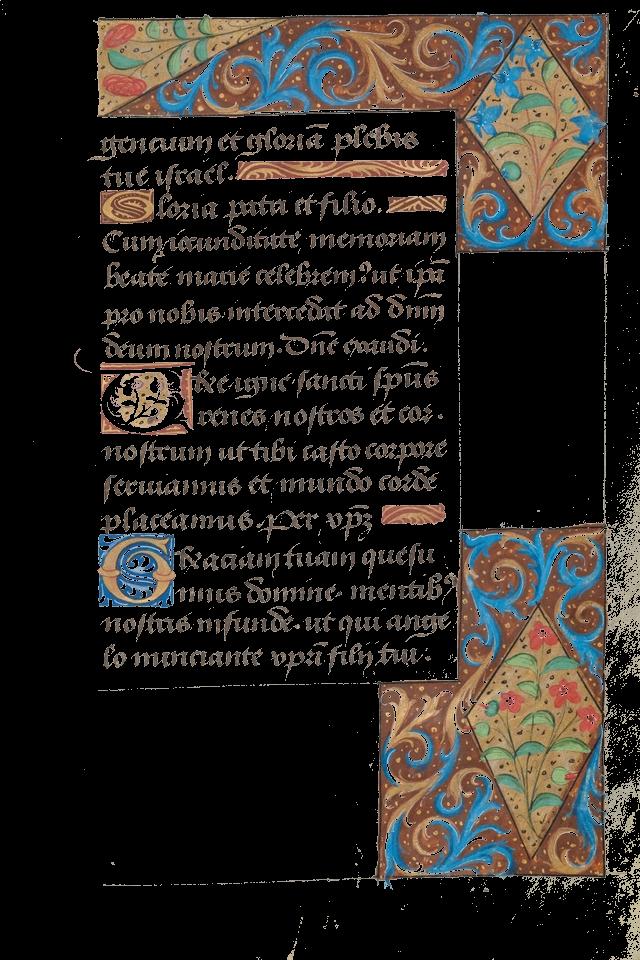 gencium et gloriā plebis
tue israel.
Gloria patri et filio.
Cum iocunditate memoriam
beate marie celebrem? ut ipā
pro nobis intercedat ad dnm̄
deum nostrum. Dne exaudi.
Ure igne sancti spūs
renes nostros et cor.
nostrum ut tibi casto corpore
seruiamus et mundo corde
placeamus. Per xpm̄
Graciam tuam quesu
mus domine. mentibꝰ
nostris infunde. ut qui ange
lo nunciante xpri filij tui.